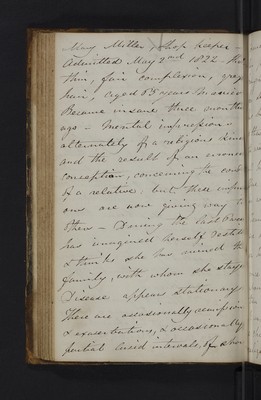 Mary Miller, Shop keeper -
Admitted May 2nd 1822 -
thin, fair complexion, grey
hair, aged 53 years
Became insane three months
ago - mental impressions
alternately of a religious kind
and the result of an
conception, concerning the
of a relative, but these
ons are now giving way to
others - During the last
has imagined herself
& thinks she has ruined the
family, with whom she stays
Disease appears stationary
There are occasionally remissions
& exacerbations, & occasionally
partial lucid intervals, of